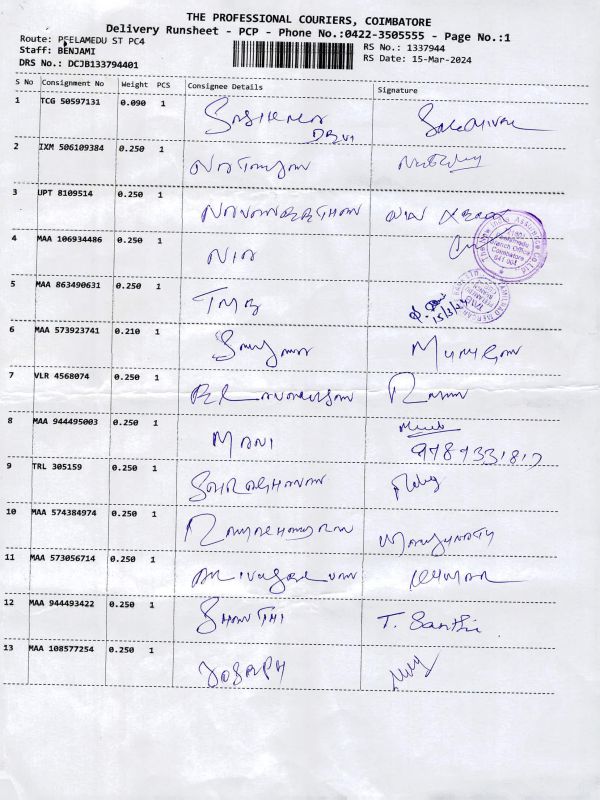 THE PROFESSIONAL COURIERS, COIMBATORE
Delivery Runsheet - PCP - Phone No.:0422-3505555 - Page No.:1
Route: PEELAMEDU ST PC4 RS No.: 1337944
Staff: BENJAMI RS Date: 15-Mar-2024
DRS No.: DCJB133794401 DCJB133794401
S No Consignment No Weight PCS Consignee Details Signature
1 TCG 50597131 0.090 1 SASIKALA
DEVI
2 IXM 506109384 0.250 1 NATARAJAN
3 UPT 8109514 0.250 1 NAVANEETHAN
4 MAA 106934486 0.250 1 NIA
5 MAA 863490631 0.250 1 TMB
15/3/24
6 MAA 573923741 0.210 1 MURUGAN
7 VLR 4568074 0.250 1
8 MAA 944495003 0.250 1 MANI
9787331817
9 TRL 305159 0.250 1
10 MAA 574384974 0.250 1 MANJUNATH
11 MAA 573056714 0.250 1 KUMAR
12 MAA 944493422 0.250 1 SHANTHI T. Santhi
13 MAA 108577254 0.250 1 JOSEPH